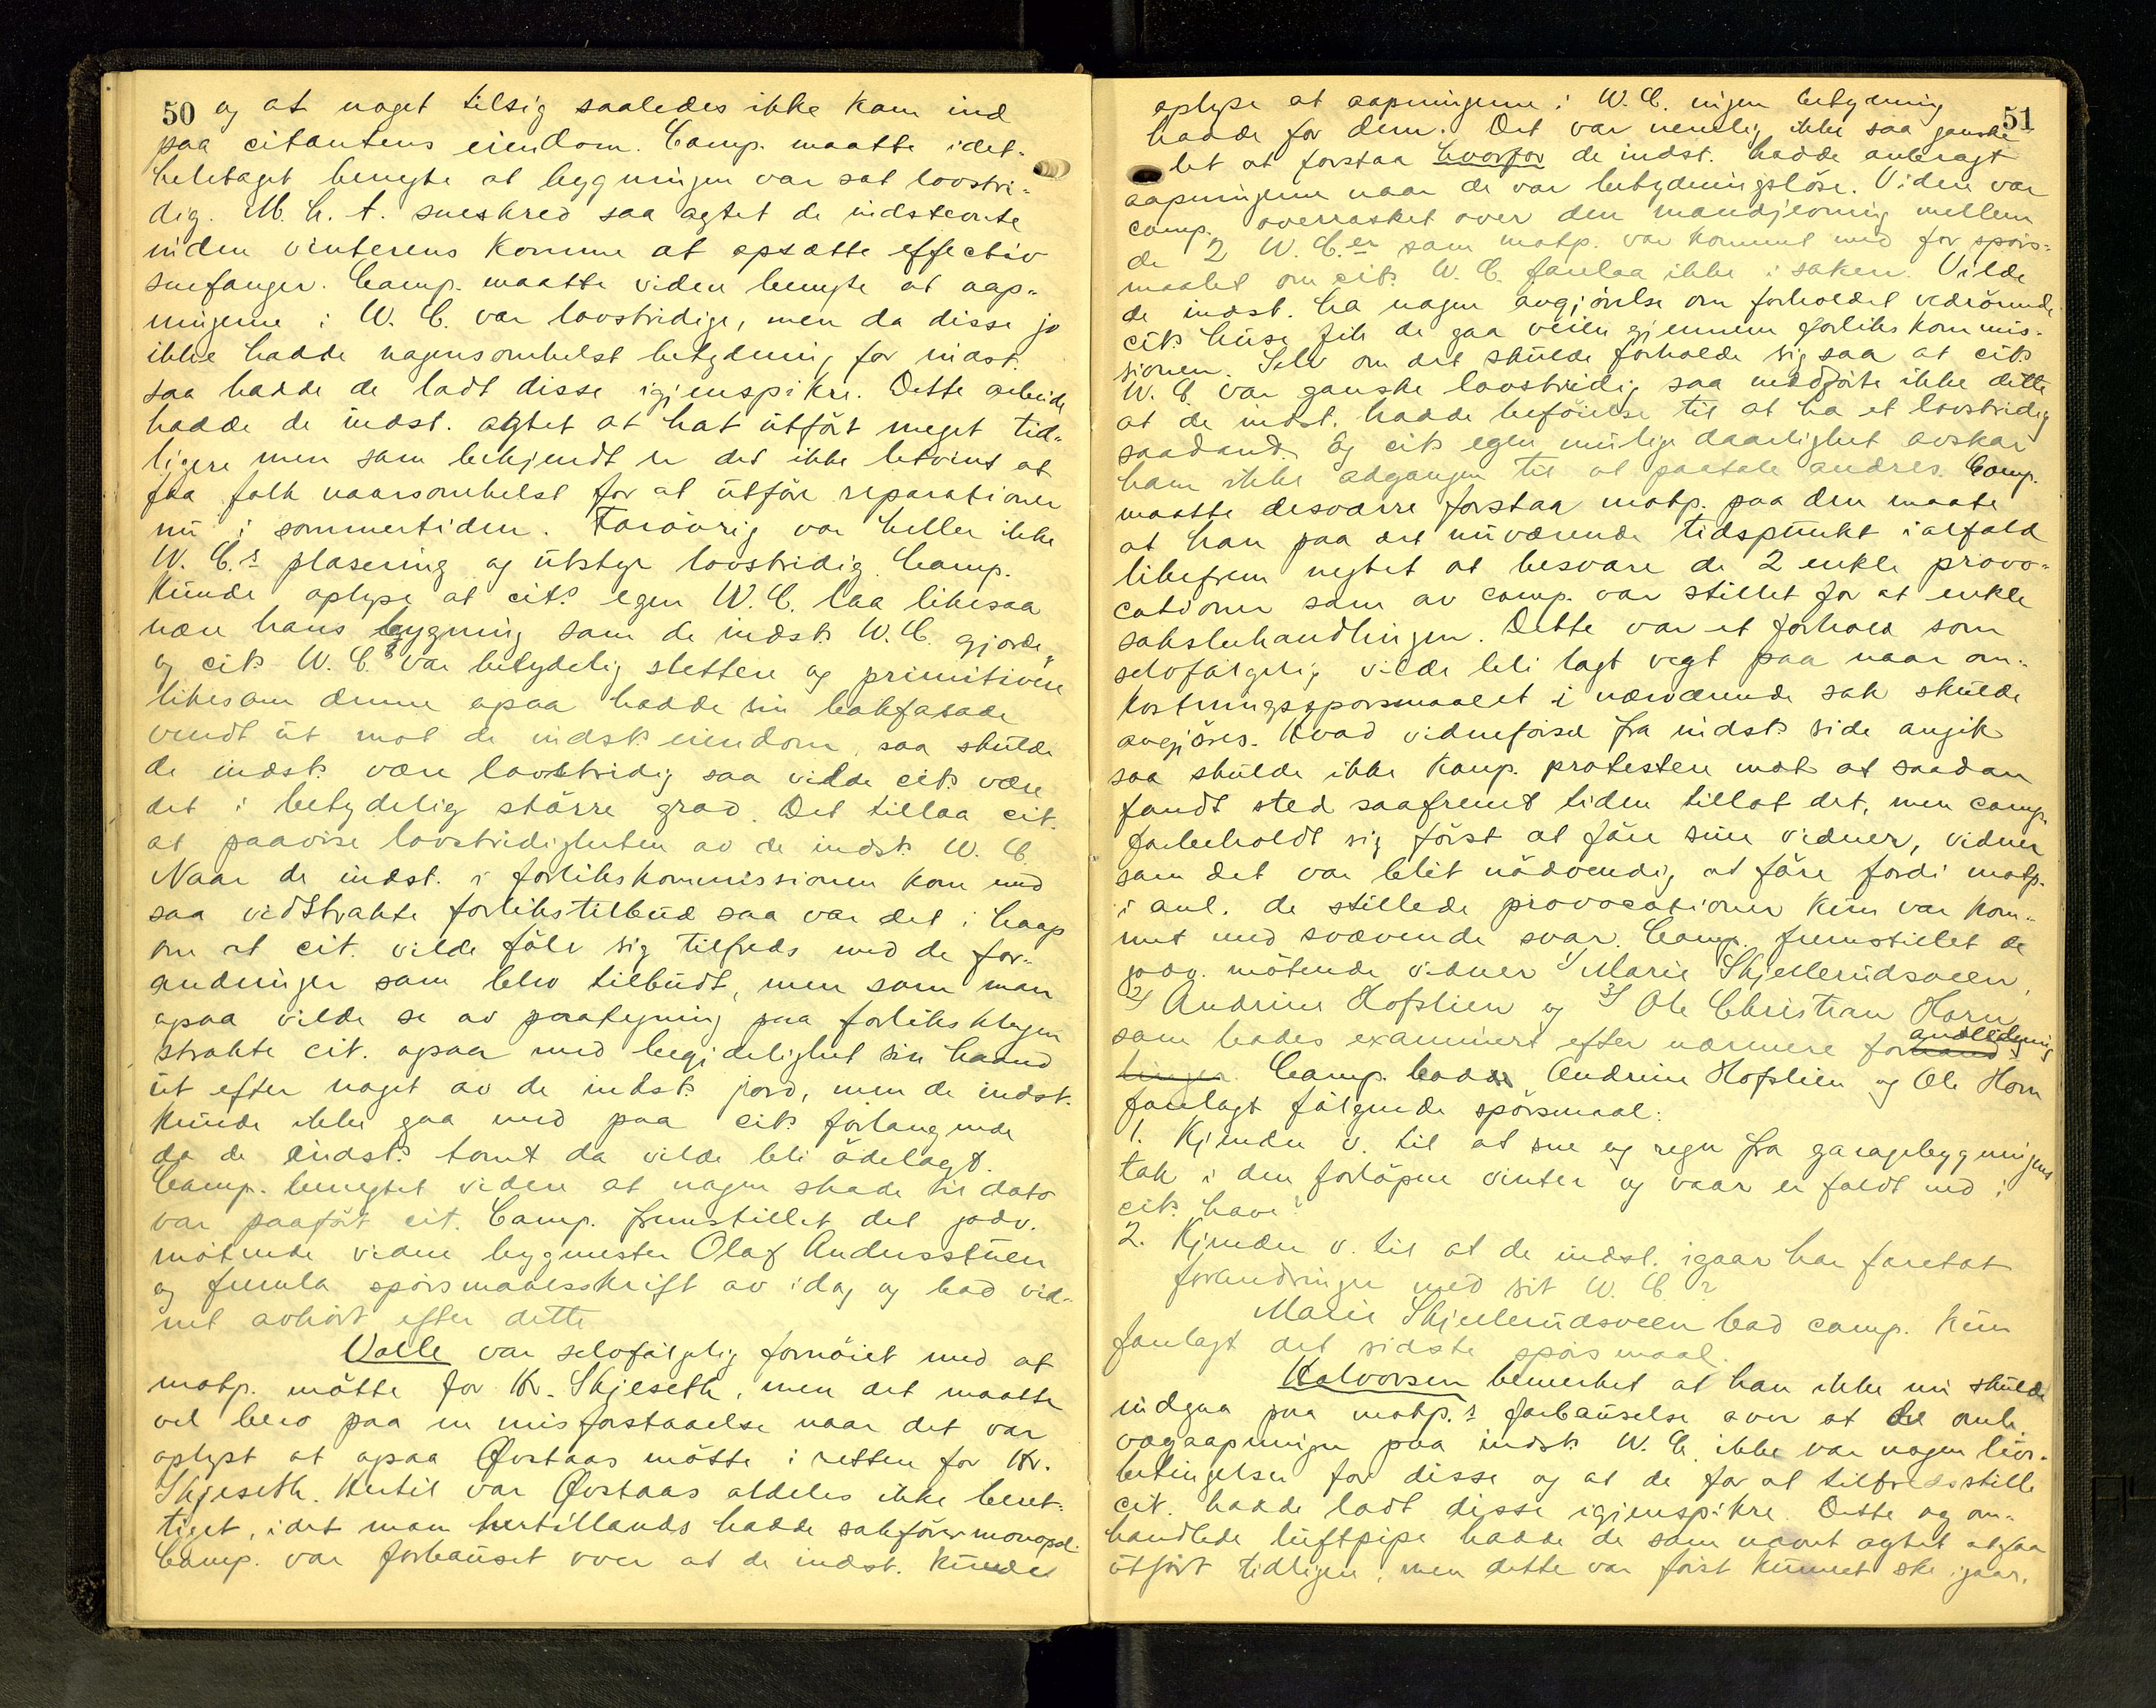 50 og at noget tilsig saaledes ikke kom ind
paa citantens eiendom. Comp. maatte idet-
heletaget benegte at bygningen var sat lovstri-
dig. M. h. t. sneskred saa agtet de indstevnte
inden vinterens komme at opsætte effectiv
snefanger. Comp. maatte viden benegte at aap-
ningerne i W. C. var lovstridige, men da disse jo
ikke hadde nogensomhelst betydning for indst.
saa hadde de ladt disse igjenspikre. Dette arbeide
hadde de indst. agtet at hat utført meget tid-
ligere men som bekjendt er det ikke letvint at
faa folk naarsomhelst for at utføre reparationer
nu i sommertiden. Forøvrig var heller ikke
W. C.s plasering og utstyr lovstridig. Comp.
kunde oplyse at cits egen W. C. laa likesaa
nær hans bygning som de indsts W. C. gjorde,
og cits W. C. var betydelig slettere og primitivere
likesom denne ogsaa hadde sin bakfasade
vendt ut mot de indsts eiendom, saa skulde
de indsts være lovstridig saa vilde cits være
det i betydelig større grad. Det tillaa cit.
at paavise lovstridigheten av de indsts W. C.
Naar de indst. i forlikskommissionen kom med
saa vidtstrakte forlikstilbud saa var det i haap
om at cit. vilde føle sig tilfreds med de for-
andringer som blev tilbudt, men som man
ogsaa vilde se av paategning paa forliksklagen
strakte cit. ogsaa med begjærlighet sin haand
ut efter noget av de indsts jord, men de indst.
kunde ikke gaa med paa cits forlangende
da de indsts tomt da vilde bli ødelagt.
Comp. benegtet videre at nogen skade til dato
var paaført cit. Comp. fremstillet det godv.
møtende vidne bygmester Olaf Andersstuen
og fremla spørsmaalsskrift av idag og bad vid-
net avhørt efter dette
Valle var selvfølgelig fornøiet med at
motp. møtte for Kr. Skjeseth, men det maatte
vel bero paa en misforstaaelse naar det var
oplyst at ogsaa Øvstaas møtte i retten for Kr.
Skjeseth. Hertil var Øvstaas aldeles ikke beret-
tiget, idet man hertillands hadde sakførermonopol.
Comp. var forbauset over at de indst. kunde
51
oplyse at aapningerne i W. C. ingen betydning
hadde for dem. Det var nemlig ikke saa ganske
let at forstaa hvorfor de indst. hadde anbragt
aapningerne naar de var betydningsløse. Videre var
comp. overrasket over den mandjevning mellem
de 2 W. C.er som motp. var kommet med for spørs-
maalet om cits W. C. forelaa ikke i saken. Vilde
de indst. ha nogen avgjørelse om forholdet vedrørende
cits huse fik de gaa veien gjennem forlikskommis-
sionen. Selv om det skulde forholde sig saa at cits
W. C. var ganske lovstridig saa medførte ikke dette
at de indst. hadde beføielse til at ha et lovstridig
saadand. Og cits egen mulige daarlighet avskar
ham ikke adgangen til at paatale andres. Comp.
maatte desværre forstaa motp. paa den maate
at han paa det nuværende tidspunkt ialfald
likefrem negtet at besvare de 2 enkle provo-
cationer som av comp. var stillet for at enkle
saksbehandlingen. Dette var et forhold som
selvfølgelig vilde bli lagt vegt paa naar om-
kostningsspørsmaalet i nærværende sak skulde
avgjøres. Hvad vidneførsel fra indsts side angik
saa skulde ikke komp. protestere mot at saadan
fandt sted saafremt tiden tillot det, men comp.
forbeholdt sig først at føre sine vidner, vidner
som det var blit nødvendig at føre fordi motp.
i anl. de stillede provocationer kun var kom-
met med svævende svar. Comp. fremstillet de
godv. møtende vidner 1/ Marie Skjellerudsveen,
2/ Andrine Hofslien og 3/ Ole Christian Horn
som bades examinert efter nærmere forhand andledning
linger. Comp. badde Andrine Hofslien og Ole Horn
forelagt følgende spørsmaal:
1. Kjender v. til at sne og regn fra garagebygningens
tak i den forløpne vinter og vaar er faldt ned i
cits have?
2. Kjender v. til at de indst. igaar har foretat
forandringer med sit W. C.?
Marie Skjellerudsveen bad comp. kun
forelagt det sidste spørsmaal.
Halvorsen bemerket at han ikke nu skulde
indgaa paa motp.s forbauselse over at de omh.
vægaapninger paa indsts W. C. ikke var nogen livs-
betingelser for disse og at de for at tilfredsstille
cit. hadde ladt disse igjenspikre. Dette og om-
handlede luftpipe hadde de som nævnt agtet at faa
utført tidligere, men dette var først kunnet ske igaar.